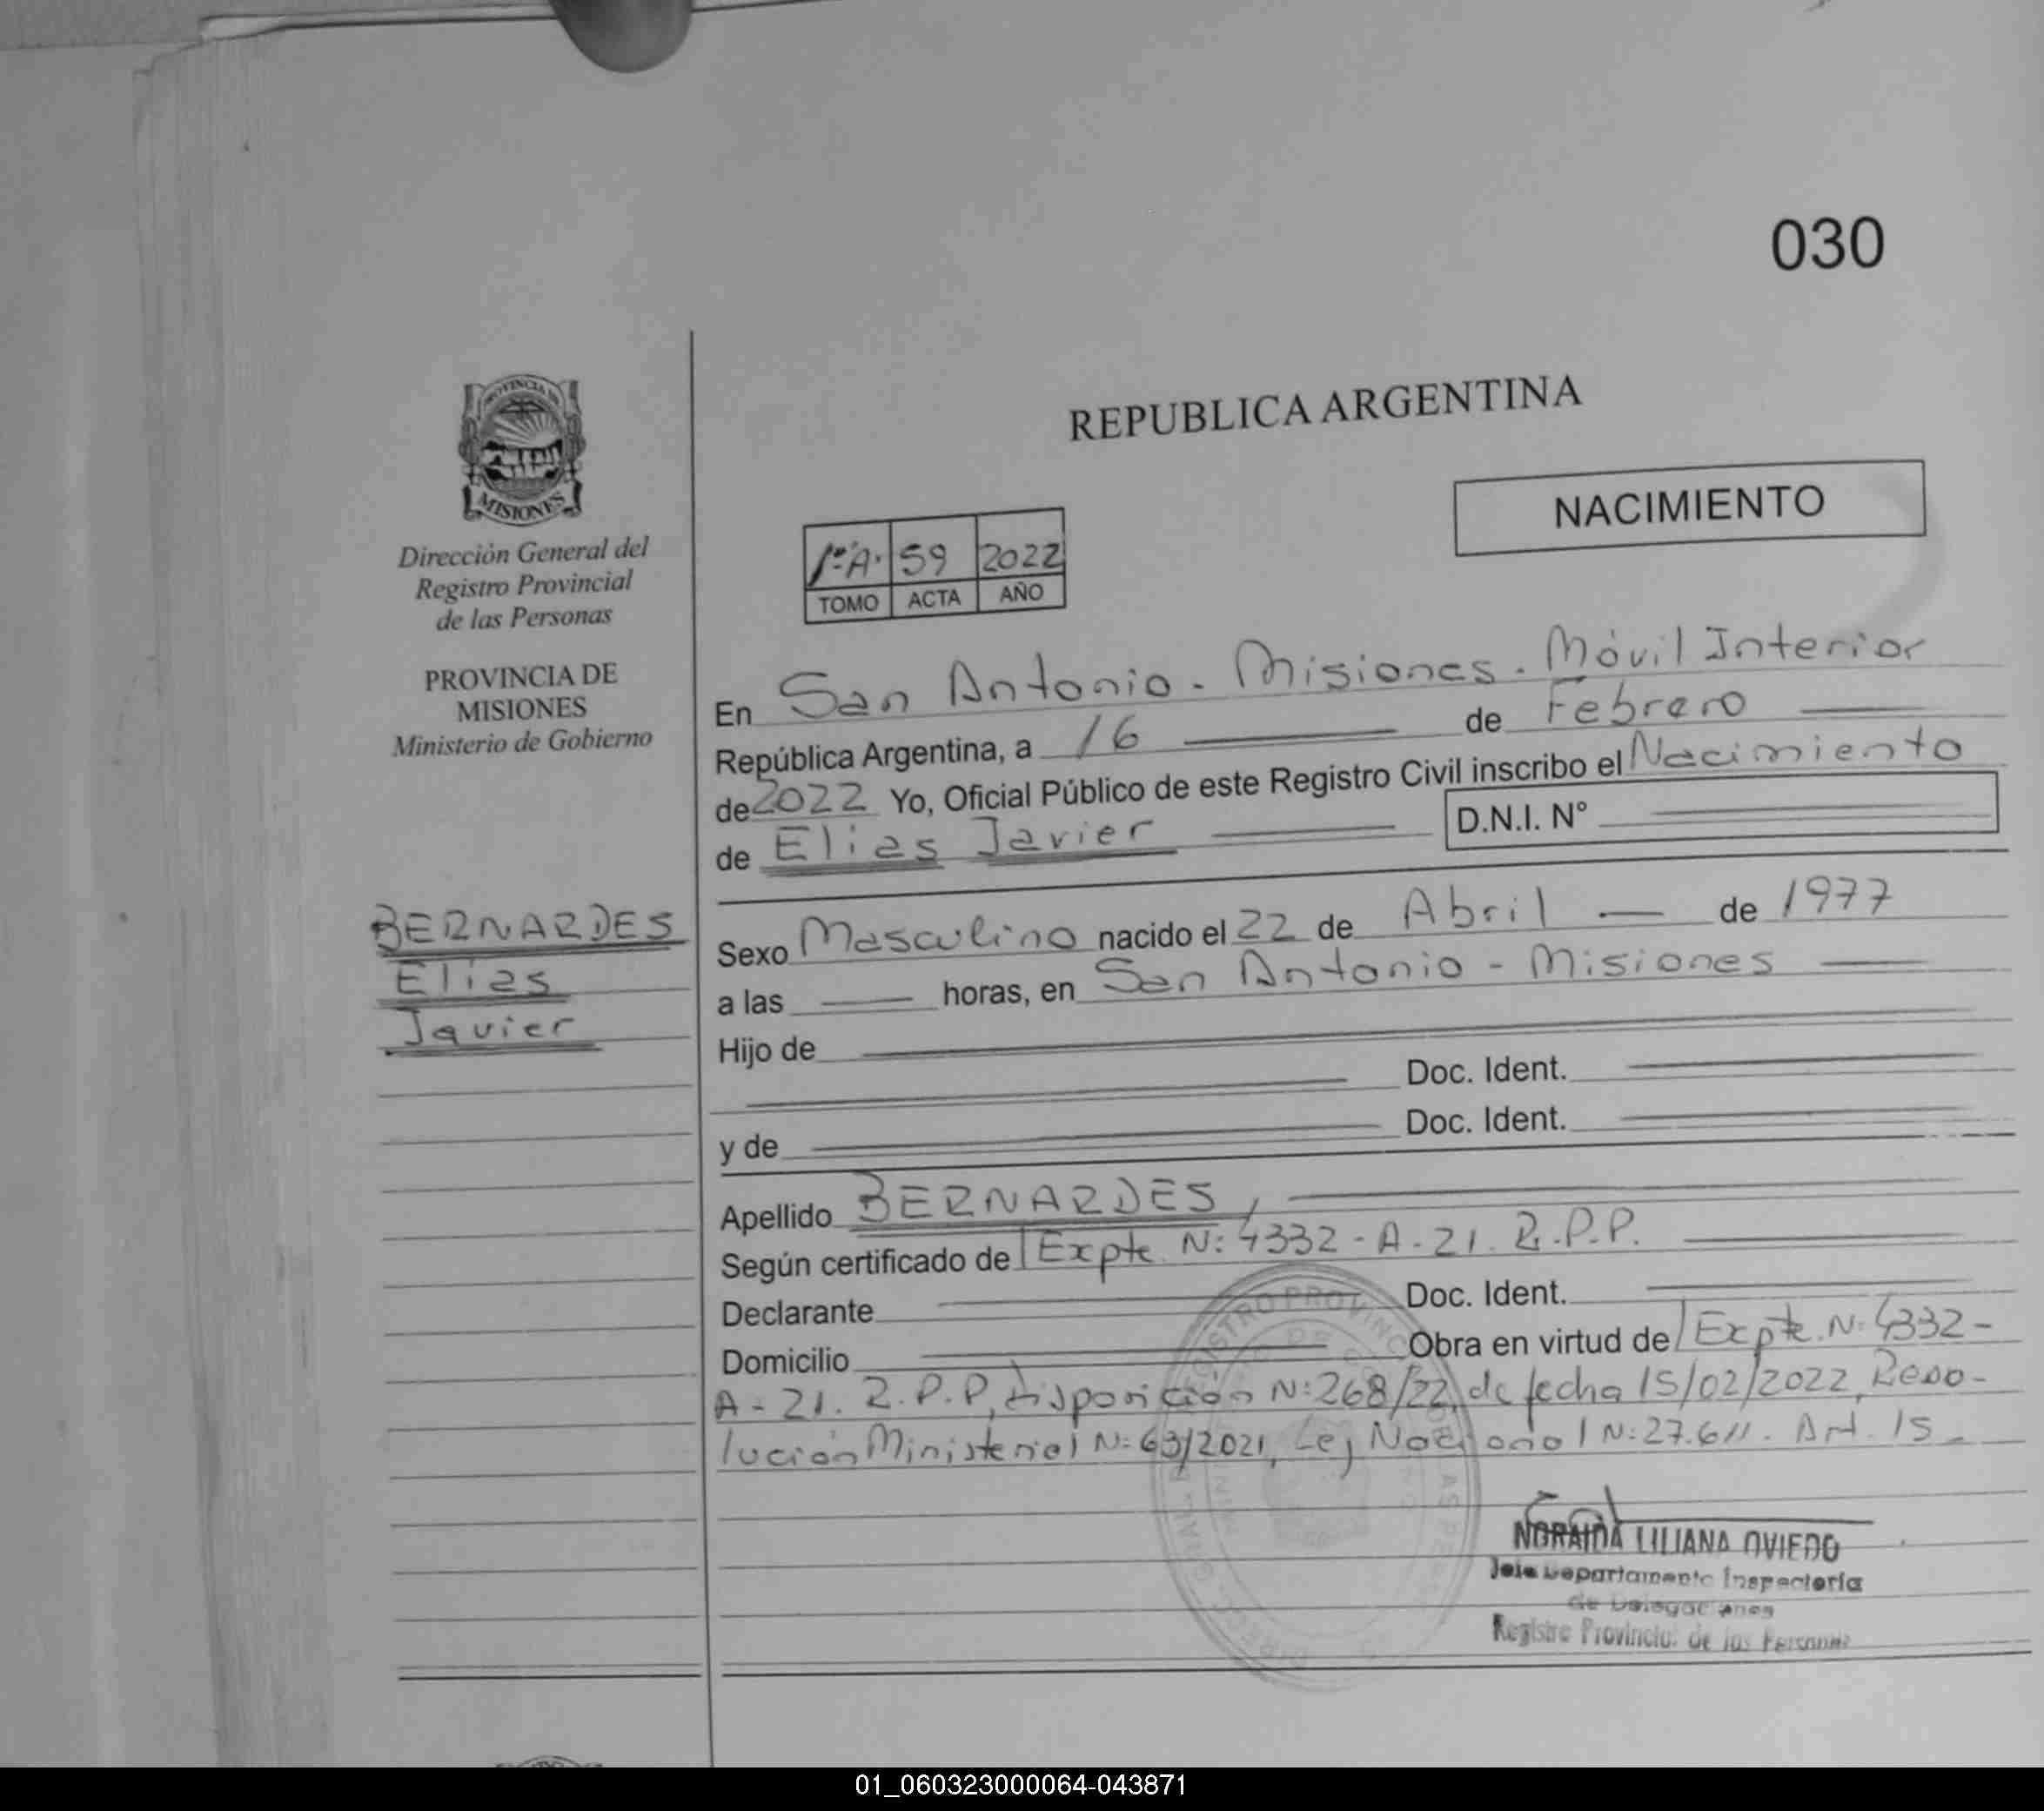 030
PROVINCIA DE
MISIONES
Dirección General del
Registro Provincial
de las Personas
PROVINCIA DE
MISIONES
Ministerio de Gobierno
BERNARDES
Elias
Javier
REPUBLICA ARGENTINA
NACIMIENTO
1º"A" 59 2022
TOMO ACTA AÑO
En San Antonio - Misiones. Móvil Interior
República Argentina, a 16 de Febrero
de 2022 Yo, Oficial Público de este Registro Civil inscribo el Nacimiento
de Elias Javier D.N.I. N°
Sexo Masculino nacido el 22 de Abril de 1977
a las horas, en San Antonio - Misiones
Hijo de
Doc. Ident.
y de Doc. Ident.
Apellido BERNARDES,
Según certificado de Expte N: 4332 - A - 21. R.P.P.
Declarante Doc. Ident.
Domicilio Obra en virtud de Expte. N: 4332 -
A - 21. R.P.P, disposición N: 268/22, de fecha 15/02/2022, Reso-
lución Ministerial N: 63/2021, Ley Nacional N: 27.611. Art. 15.
NORAIDA LILIANA OVIEDO
Jefe Departamento Inspectoría
de Delegaciones
Registro Provincial de las Personas
01_060323000064-043871